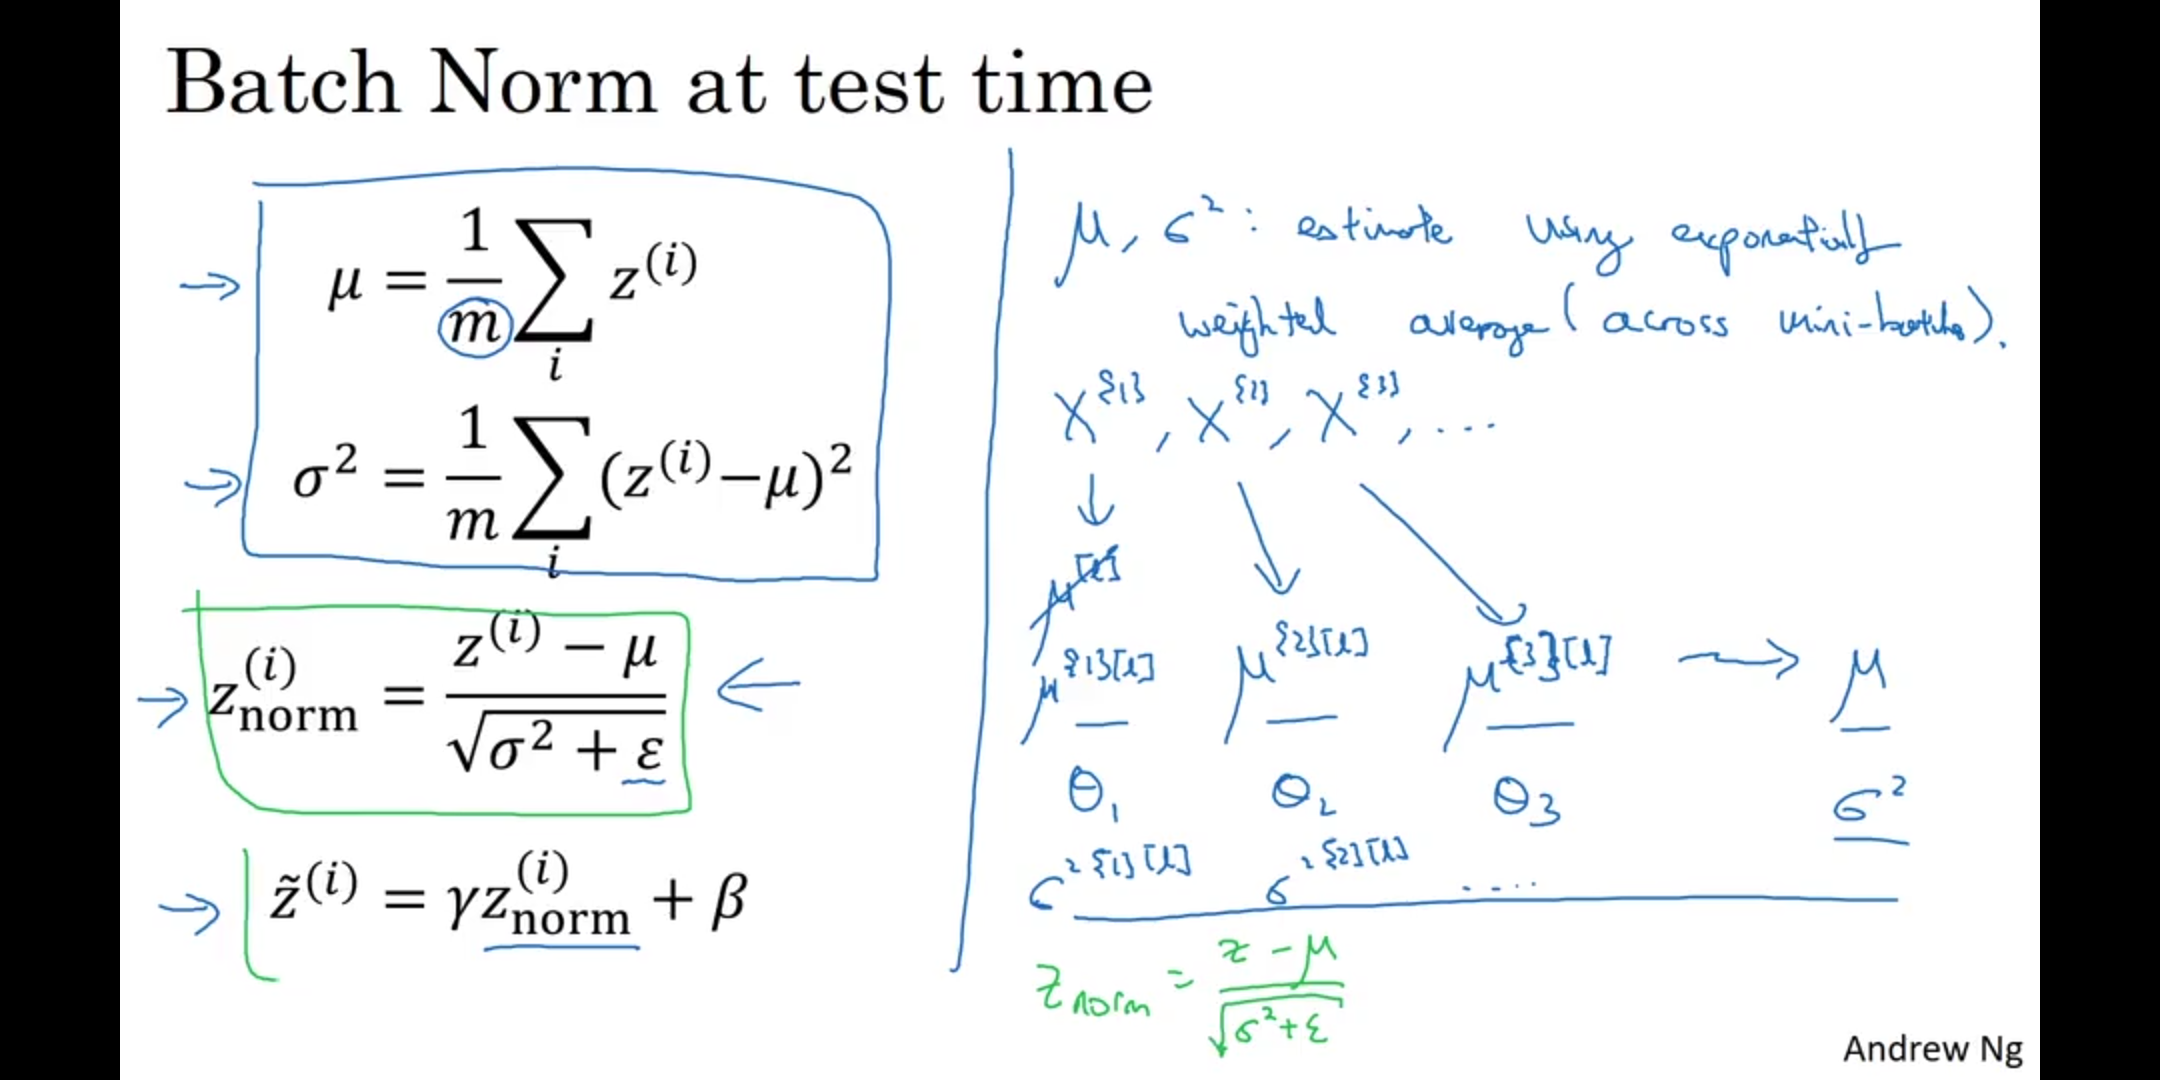 Batch Norm at test time
→ μ = 1/m ∑_i z^(i)
→ σ² = 1/m ∑_i (z^(i)−μ)²
→ z_norm^(i) = (z^(i) − μ) / √(σ² + ε) ←
→ z̃^(i) = γz_norm^(i) + β
μ, σ²: estimate using exponentially
weighted average (across mini-batches).
X^{1}, X^{2}, X^{3}, ...
μ^[l]
μ^{1}[l] μ^{2}[l] μ^{3}[l] → μ
θ₁ θ₂ θ₃ σ²
σ^2{1}[l] σ^2{2}[l] ....
z_norm = (z − μ) / √(σ²+ε)
Andrew Ng